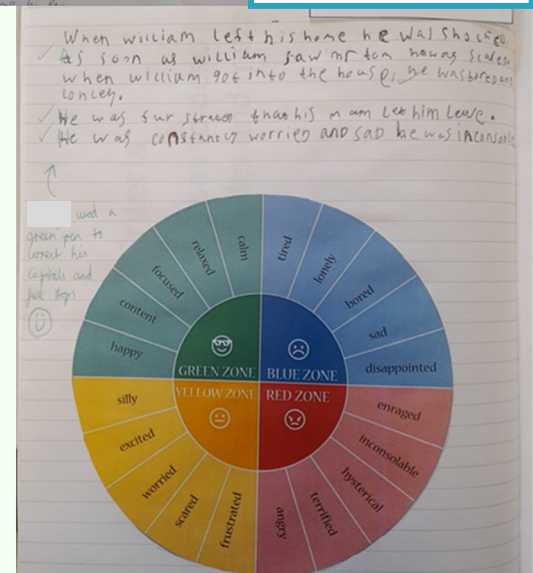 When william left his home he was shocked.
As soon as william saw mr tom he was scared.
when william got into the house, he was bored and
lonley.
He was that his mam let him leave.
He was constantly worried and sad he was inconsolable
used a
green pen to
correct his
capitals and
full stops
calm
relaxed
focused
content
happy
GREEN ZONE
tired
lonely
bored
sad
disappointed
BLUE ZONE
YELLOW ZONE
silly
excited
worried
scared
frustrated
RED ZONE
enraged
inconsolable
hysterical
terrified
angry